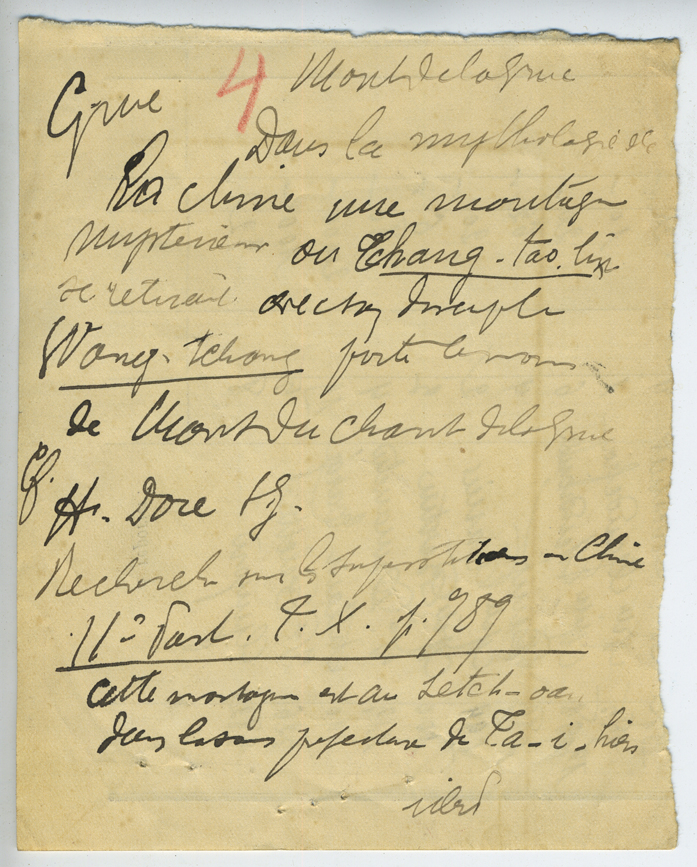 Grue 4 Mont de la Grue
Dans la mythologie de
La chine une montagne
mysterieuse ou Tchang-tao-lin
se retirait avec son disciple
Wang-tchang porte le nom
de Mont du chant de la Grue
Cf. H. Dore SJ.
Recherches sur les superstitions en Chine
IIe Part. T. X. p. 789
cette montagne est au Setch-oan
dans la sous prefecture de Ta-i-hien